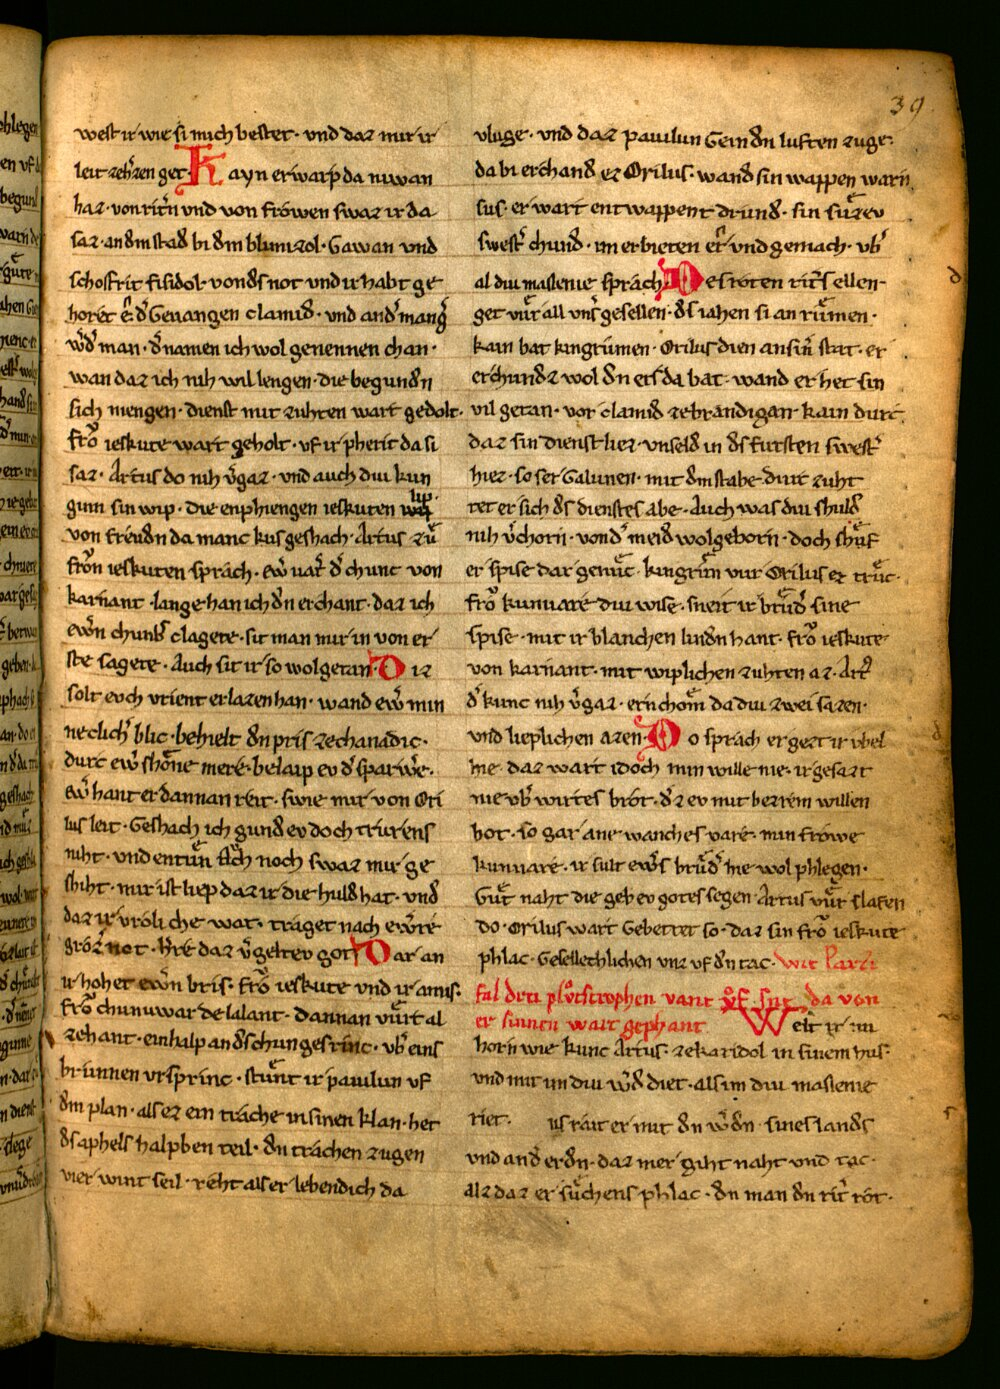 39
west ir wie si mich bestet · vnd daz mir ir
leit zehˢzen get K ayn erwarp da niwan
haz · von ritˢn vnd von frowen swaz ir da
saz · an dem stad bi dem blimizol · Gawan vnd
schoffrit fisidol · von ds not vnd ir habt ge
horet e · ds Geuangen clamid · vnd andˢ mang
wˢd man · dˢ namen ich wol genennen chan ·
wan daz ich nih wil lengen · die begundn
sich mengen · dienst mit zuhten wart gedolt ·
fro ieskute wart geholt · vf ir pherit da si
saz · Artus do nih vˢgaz · vnd auch diu kun
ginn sin wip · die enphiengen ieskuten lip
von freudn da manc kus geshach · Artus zu
fron ieskuten sprach · ewˢ vatˢ dˢ chunc von
karnant · lange han ich dn erchant · daz ich
ewˢn chunbˢ clagete · sit man mir in von er
ste sagete · Auch sit ir so wolgetan D iz
solt euch vrient erlazen han · wand ewˢ min
neclichˢ blic · behielt dn pris zechanadic ·
durc ewˢ shone mere · belaip ev dˢ sparwˢe ·
ewˢ hant er dannan reit · swie mir von Ori
lus leit · Geshach ich gund ev doch trurens
niht · vnd entun ach noch swaz mir ge
shiht · mir ist liep daz ir die huld hat · vnd
daz ir vroliche wat · traget nach ewˢre
groz not · hˢre daz vˢgelt ev got D ar an
ir hohet ewˢn bris · fro ieskute vnd ir amis ·
fro chunuwar de lalant · dannan vurt al
zehant · einhalp an ds chunges rinc · vbˢ eins
brunnen vrsprinc · stunt ir paulun vf
dem plan · als ez ein trache in sinen klan · het
ds aphels halpben teil · dn trachen zugen
vier wint seil · reht als er lebendich da
vluge · vnd daz paulun Gein dn luften zuge ·
da bi erchand ez Orilus · wand sin wappen warn
sus · er wart entwappent drund · sin suzev
swestˢ chund · im erbieten erˢ vnd gemach · vbˢ
al diu massenie sprach D es roten ritˢs ellen ·
get vur all vnsˢ gesellen · ds iahen si an rumen ·
kain bat kingrumen · Orilus dien an sinˢ stat · er
erchundz wol dn ers da bat · wand er het sin
vil getan · vor clamid zebrandigan · kain durc
daz sin dienst liez · vnseld in ds fursten swestˢ
hiez · so ser Galunen · mit dem stabe · durc zuht
ret er sich ds dienstes abe · Auch was diu shuld
nih vˢchorn · von dˢ meid wolgeborn · doch shuf
er spise dar genuc · kingrun vur Orilus ez truc ·
fro kunuare diu wise · sneit ir brudˢ sine
spise · mit ir blanchen lindn hant · fro ieskute
von karnant · mit wiplichen zuhten az · Artˢ
dˢ kunc nih vˢgaz · ern chom da diu zwei sazen ·
vnd lieplichen azen D o sprach er gezt ir vbel
hie · daz wart idoch min wille nie · ir gesazt
nie vbˢ wirtes brot · dˢz ev mit bezzerm willen
bot · so gar ane wanches vare · min frowe
kunuare · ir sult ewˢs brudˢ hie wol phlegen ·
Gut naht die geb ev gotes segen · Artus vur slafen
do · Orilus wart Gebettet so · daz sin fro ieskute
phlac · Gesellechlichen vnz vf dn tac · wie Parzi
fal drei plutstrophen vant vf sne da von
er sinnen wart gephant W elt ir nu
horn wie kunc Artus · zekaridol in sinem hus ·
vnd mit im diu wˢd diet · als im diu massenie
riet · us rait er mit dn wˢdn · sines lands
vnd andˢ erdn · daz mer giht naht vnd tac ·
alz daz er suchens phlac · dn man dn ritˢ rot ·